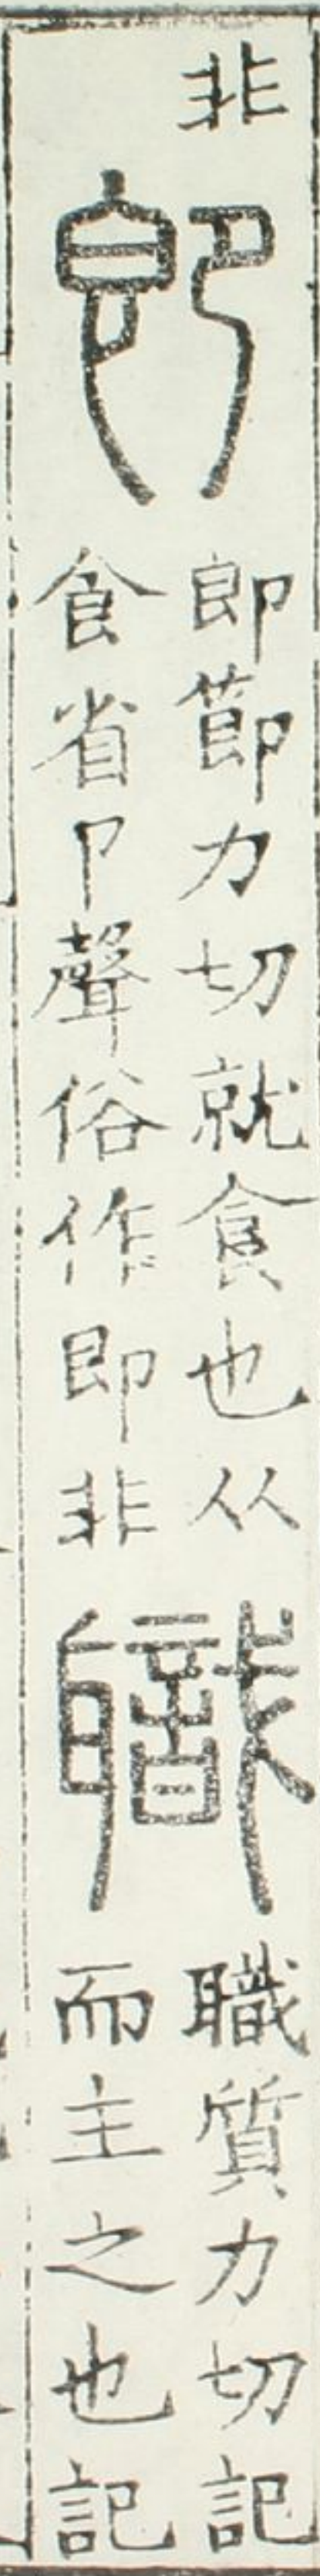 非
卽
卽節力切就食也从
食省卩聲俗作即非
職
職質力切記
而主之也記